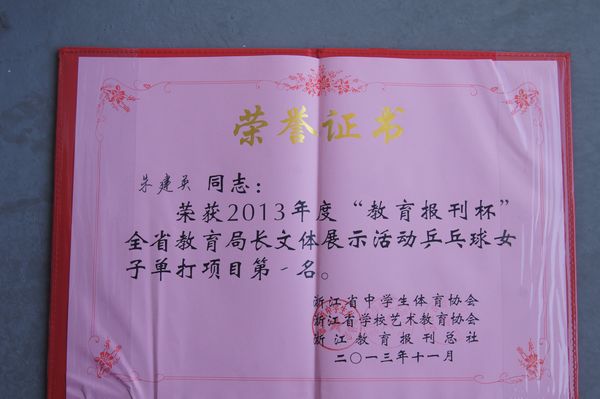 荣誉证书
朱建英 同志：
荣获2013年度“教育报刊杯”
全省教育局长文体展示活动乒乓球女
子单打项目第一名。
浙江省中学生体育协会
浙江省学校艺术教育协会
浙江教育报刊总社
二〇一三年十一月